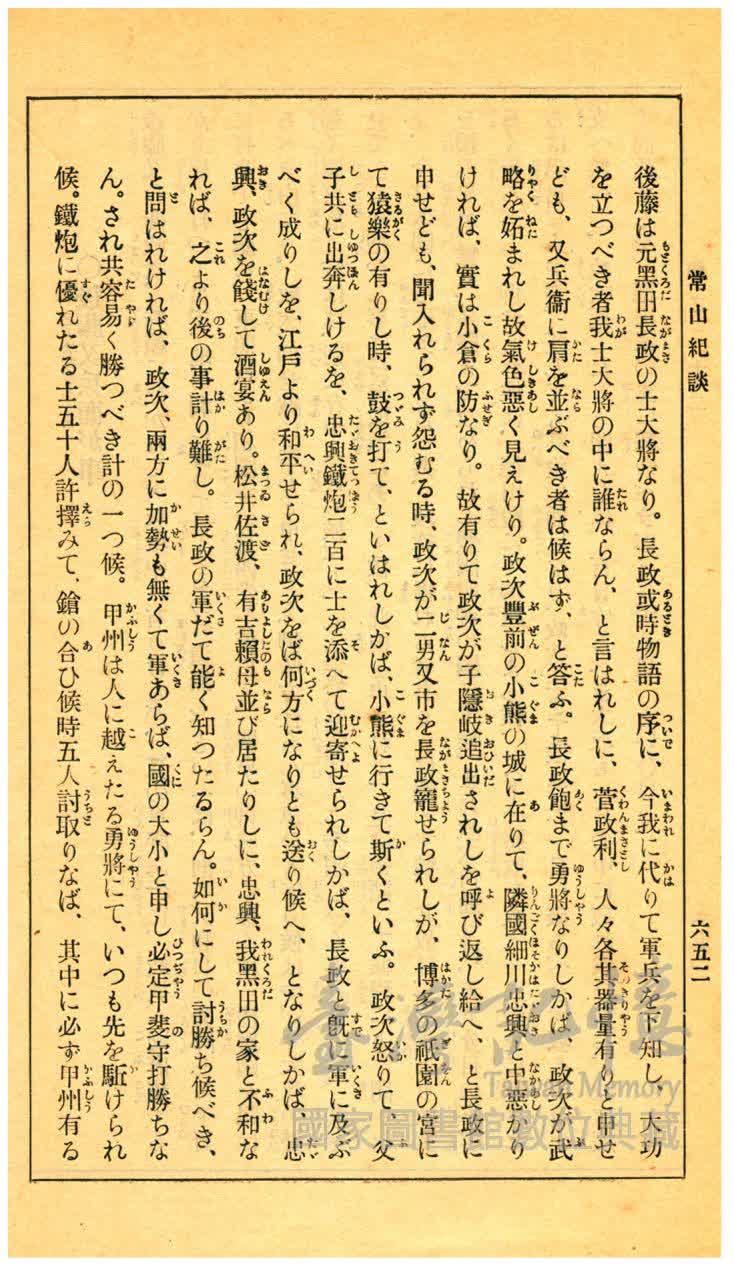 常山紀談
六五二
後藤は元黑田長政の士大將なり。長政或時物語の序に、今我に代りて軍兵を下知し、大功
を立つべき者我士大將の中に誰ならん、と言はれしに、菅政利、人々各其器量有りと申せ
ども、又兵衞に肩を並ぶべき者は候はず、と答ふ。長政飽まで勇將なりしかば、政次が武
略を妬まれし故氣色惡く見えけり。政次豐前の小熊の城に在りて、隣國細川忠興と中惡かり
ければ、實は小倉の防なり。故有りて政次が子隱岐追出されしを呼び返し給へ、と長政に
申せども、聞入れられず怨むる時、政次が二男又市を長政寵せられしが、博多の祇園の宮に
て猿樂の有りし時、鼓を打て、といはれしかば、小熊に行きて斯くといふ。政次怒りて、父
子共に出奔しけるを、忠興鐵炮二百に士を添へて迎寄せられしかば、長政と旣に軍に及ぶ
べく成りしを、江戶より和平せられ、政次をば何方になりとも送り候へ、となりしかば、忠
興、政次を餞して酒宴あり。松井佐渡、有吉賴母並び居たりしに、忠興、我黑田の家と不和な
れば、之より後の事計り難し。長政の軍だて能く知つたるらん。如何にして討勝ち候べき、
と問はれければ、政次、兩方に加勢も無くて軍あらば、國の大小と申し必定甲斐守打勝ちな
ん。され共容易く勝つべき計の一つ候。甲州は人に越えたる勇將にて、いつも先を駈けられ
候。鐵炮に優れたる士五十人許擇みて、鎗の合ひ候時五人討取りなば、其中に必ず甲州有る
臺灣記憶
Taiwan Memory
國家圖書館數位典藏